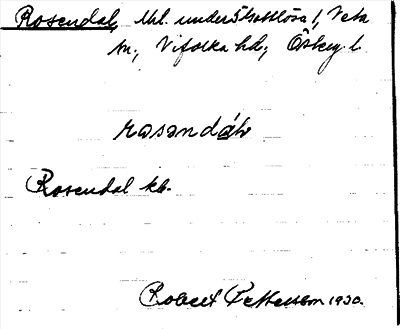 Rosendal, lht. under Skattlösa 1, Veta
sn., Vifolka hd., Österg. l.
rosəndáɫv
Rosendal kb.
Robert Pettersson 1930.